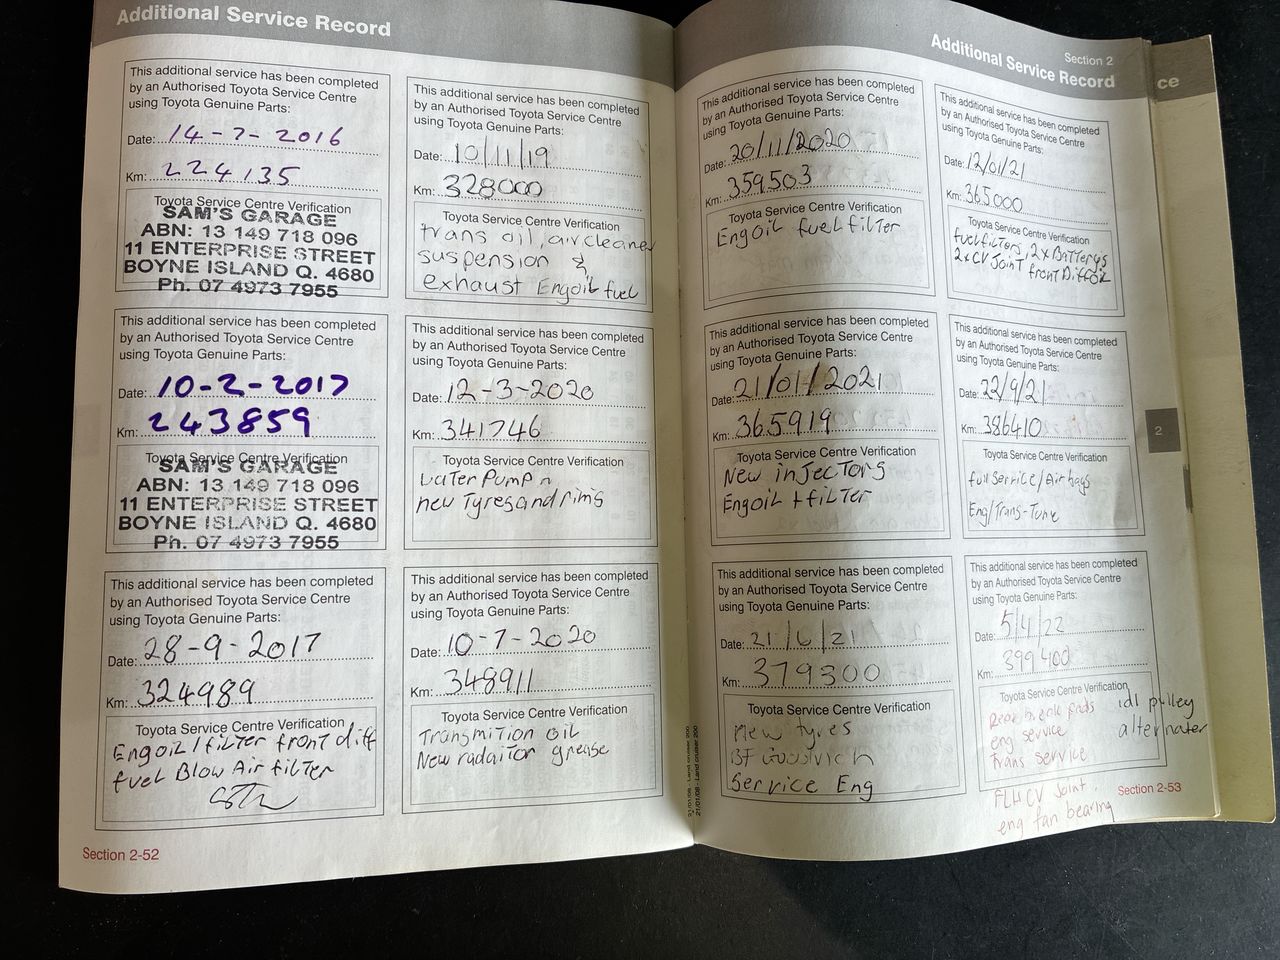 Additional Service Record
This additional service has been completed
by an Authorised Toyota Service Centre
using Toyota Genuine Parts:
Date: 14-7-2016
Km: 224135
Toyota Service Centre Verification
SAM'S GARAGE
ABN: 13 149 718 096
11 ENTERPRISE STREET
BOYNE ISLAND Q. 4680
Ph. 07 4973 7955
This additional service has been completed
by an Authorised Toyota Service Centre
using Toyota Genuine Parts:
Date: 10-2-2017
Km: 243859
Toyota Service Centre Verification
SAM'S GARAGE
ABN: 13 149 718 096
11 ENTERPRISE STREET
BOYNE ISLAND Q. 4680
Ph. 07 4973 7955
This additional service has been completed
by an Authorised Toyota Service Centre
using Toyota Genuine Parts:
Date: 28-9-2017
Km: 324989
Toyota Service Centre Verification
Engoil/filter front diff
fuel Blow Air filter
Section 2-52
This additional service has been completed
by an Authorised Toyota Service Centre
using Toyota Genuine Parts:
Date: 10/11/19
Km: 328000
Toyota Service Centre Verification
trans oil, air cleaner
suspension &
exhaust Engoil fuel
This additional service has been completed
by an Authorised Toyota Service Centre
using Toyota Genuine Parts:
Date: 12-3-2020
Km: 341746
Toyota Service Centre Verification
water Pump
new Tyres and rims
This additional service has been completed
by an Authorised Toyota Service Centre
using Toyota Genuine Parts:
Date: 10-7-2020
Km: 348911
Toyota Service Centre Verification
Transmition oil
New radaitor grease
21/01/08 - Land cruiser 200
21/01/08 - Land cruiser 200
Section 2
Additional Service Record
ce
This additional service has been completed
by an Authorised Toyota Service Centre
using Toyota Genuine Parts:
Date: 20/11/2020
Km: 359503
Toyota Service Centre Verification
Engoil fuel filter
This additional service has been completed
by an Authorised Toyota Service Centre
using Toyota Genuine Parts:
Date: 21/01/2021
Km: 365919
Toyota Service Centre Verification
New injectors
Engoil + filter
This additional service has been completed
by an Authorised Toyota Service Centre
using Toyota Genuine Parts:
Date: 21/6/21
Km: 379300
Toyota Service Centre Verification
New tyres
BF Goodrich
Service Eng
This additional service has been completed
by an Authorised Toyota Service Centre
using Toyota Genuine Parts:
Date: 12/01/21
Km: 365000
Toyota Service Centre Verification
fuel filters, 2x Batterys
2x CV Joint front Diff oil
This additional service has been completed
by an Authorised Toyota Service Centre
using Toyota Genuine Parts:
Date: 22/9/21
Km: 386410
Toyota Service Centre Verification
full Service/Air bags
Eng/Trans-Tune
2
This additional service has been completed
by an Authorised Toyota Service Centre
using Toyota Genuine Parts:
Date: 5/4/22
Km: 399400
Toyota Service Centre Verification
Rear break pads idl pulley
eng service alternater
Trans service
FLH CV Joint.
eng fan bearing
Section 2-53